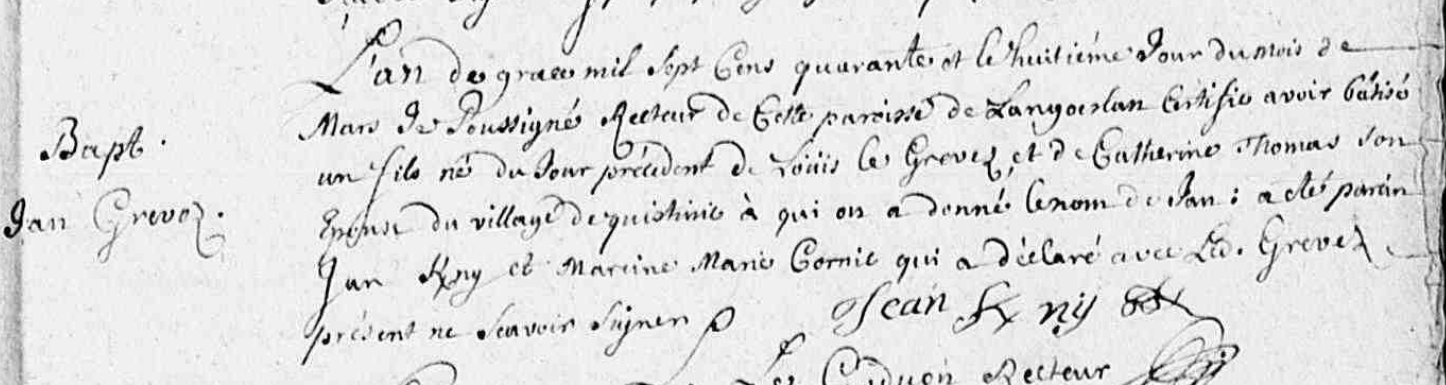 L'an de grace mil sept Cens quarante et le huitiéme Jour du mois de
Mars Je Soussigné Recteur de Cette paroisse de Langoerlan Certifie avoir bâtisé
Bapt.
un fils né du Jour précédent de Loüis le Grevez et de Catherine Thomas son
Jan Grevez.
Epouse du village de quistinic à qui on a donné le nom de Jan : a été parein
Jan et Mareine Marie Cornic qui a déclaré avec Led. Grevez
présent ne scavoir signer
Jean
Recteur